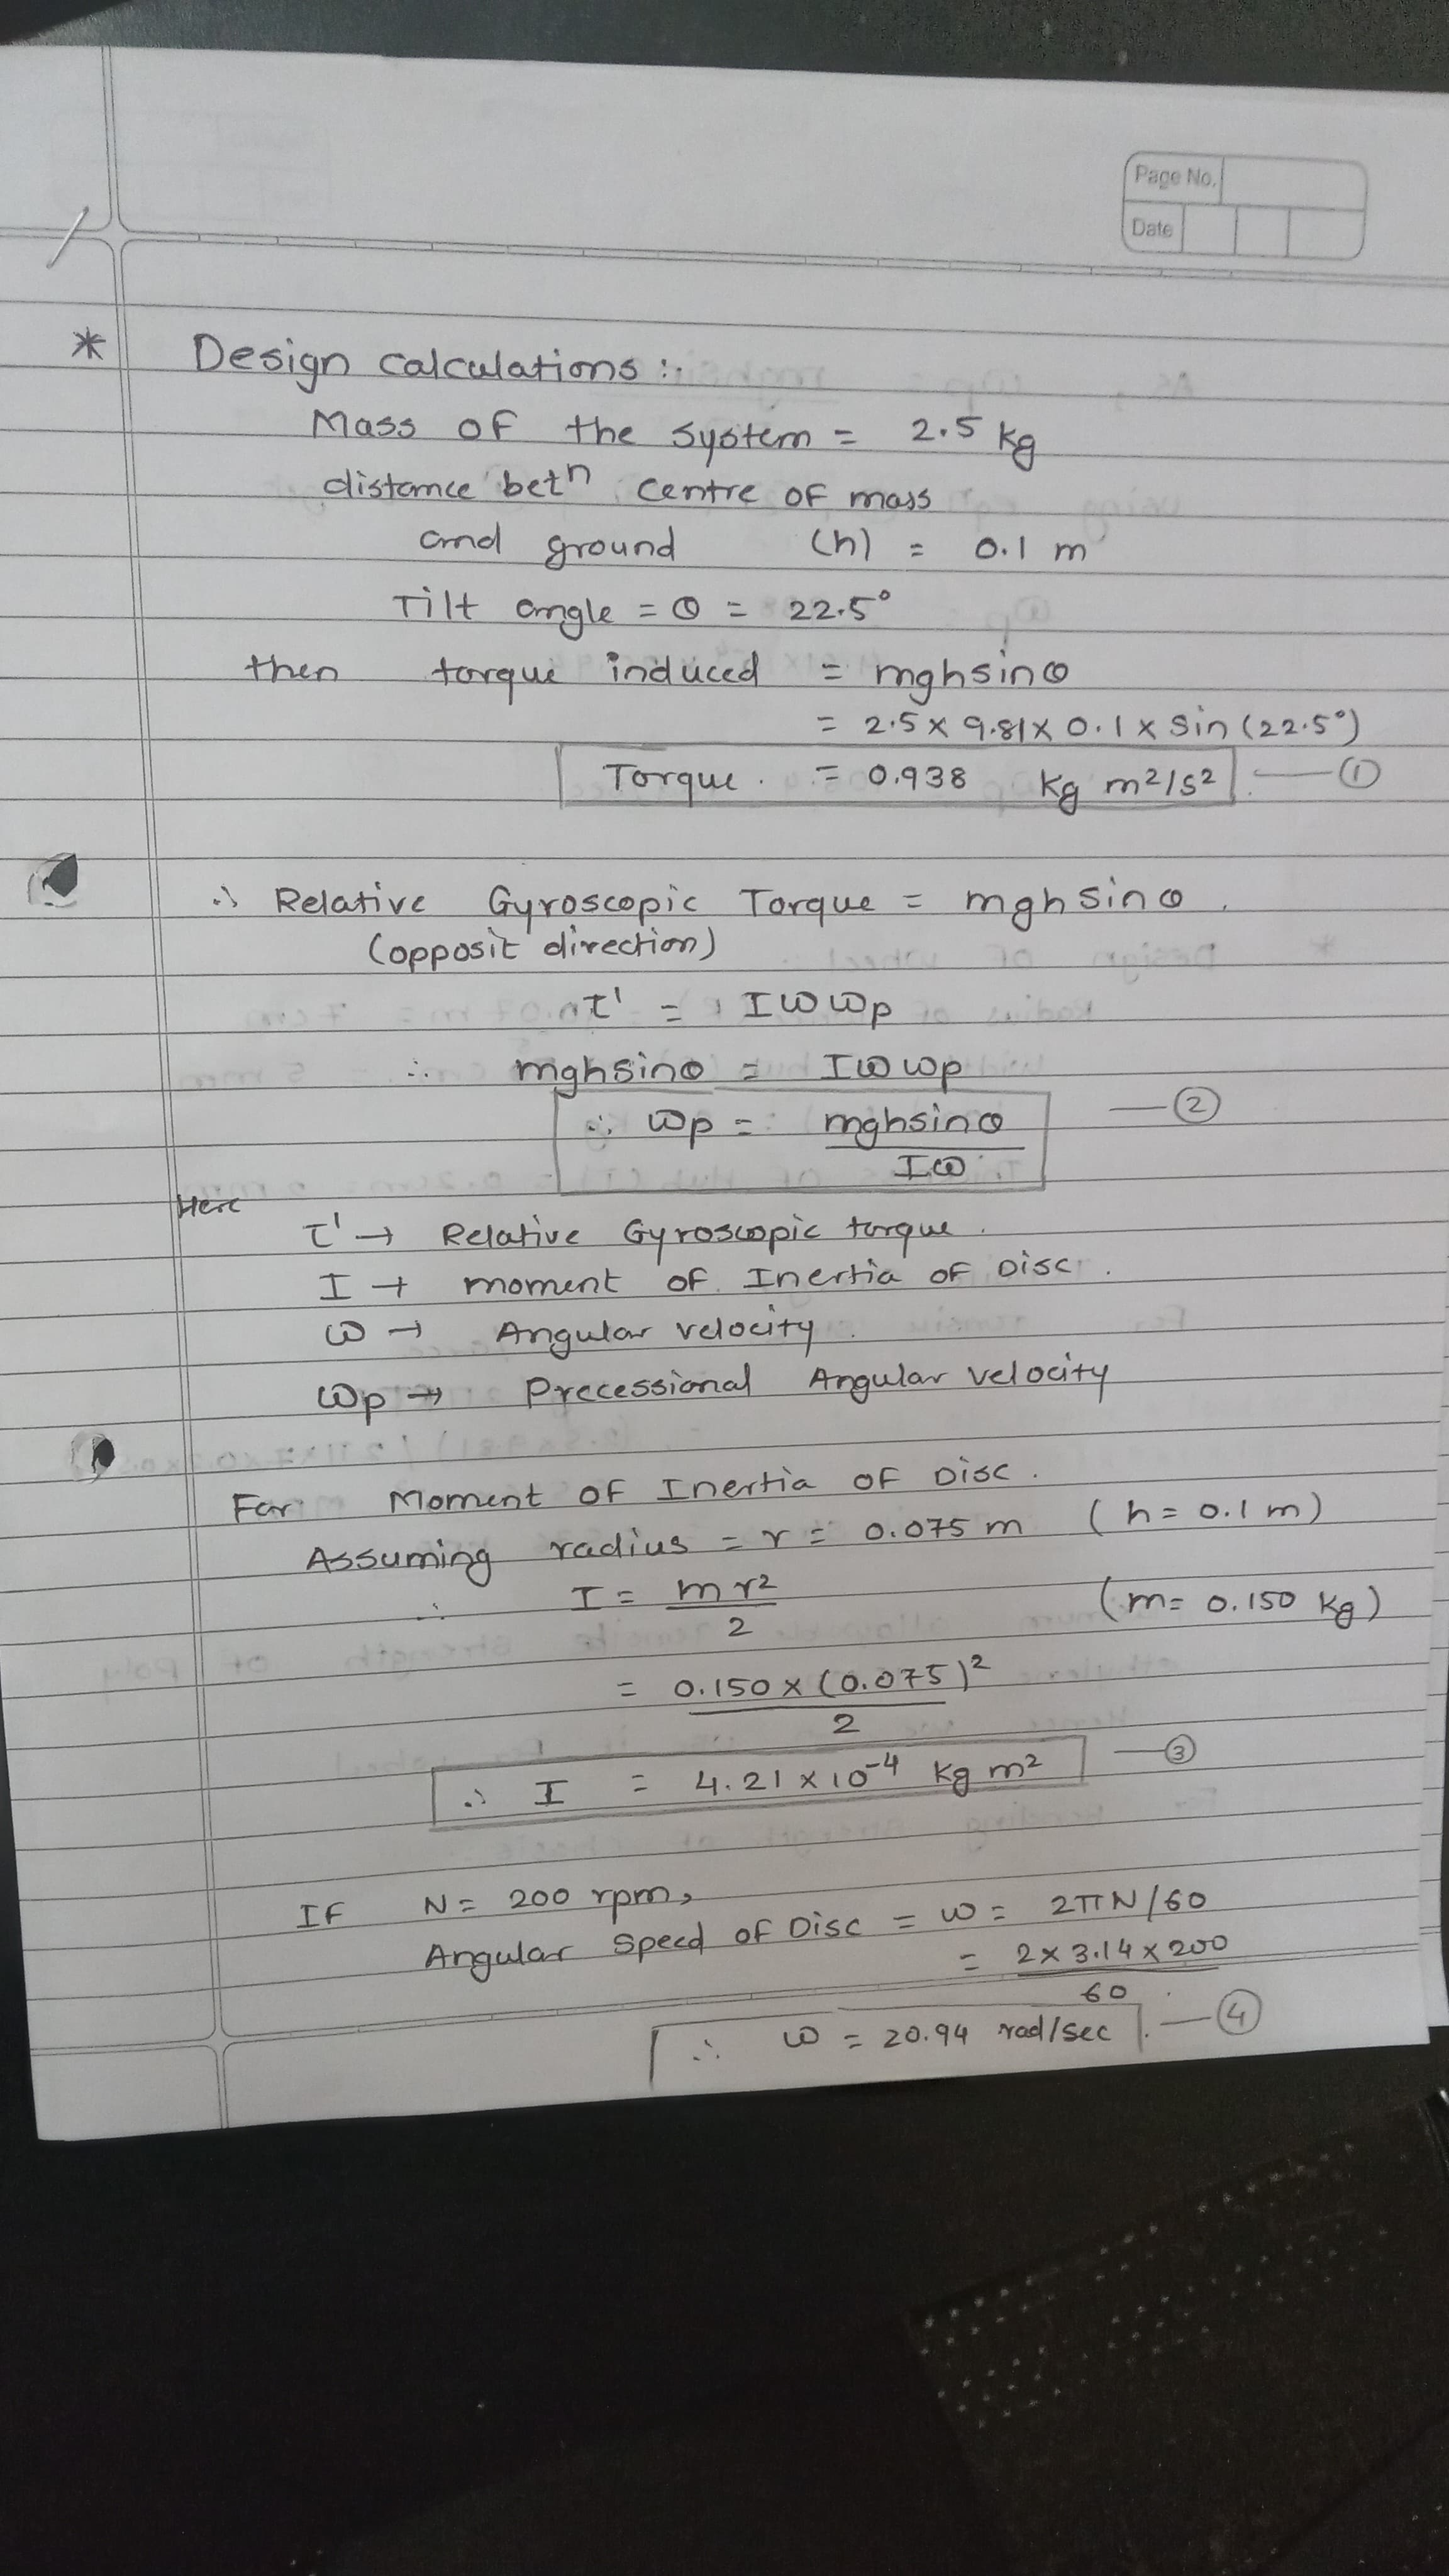 Page No.
Date
* Design calculations :-
Mass of the system = 2.5 kg
distance betⁿ centre of mass
and ground (h) = 0.1 m
Tilt angle = θ = 22.5°
then torque induced = mghsinθ
= 2.5 × 9.81 × 0.1 × sin (22.5°)
Torque = 0.938 kg m²/s² — ①
∴ Relative Gyroscopic Torque = mghsinθ.
(opposit direction)
τ' = Iωωp
∴ mghsinθ = Iωωp
∴ ωp = mghsinθ / Iω — ②
Here
τ' → Relative Gyroscopic torque.
I → moment of Inertia of Disc.
ω → Angular velocity.
ωp → Precessional Angular velocity
For Moment of Inertia of Disc.
Assuming radius = r = 0.075 m (h = 0.1 m)
∴ I = mr² / 2 (m = 0.150 kg)
= 0.150 × (0.075)² / 2
∴ I = 4.21 × 10⁻⁴ kg m² — ③
If N = 200 rpm,
Angular Speed of Disc = ω = 2πN/60
= 2 × 3.14 × 200 / 60
∴ ω = 20.94 rad/sec. — ④